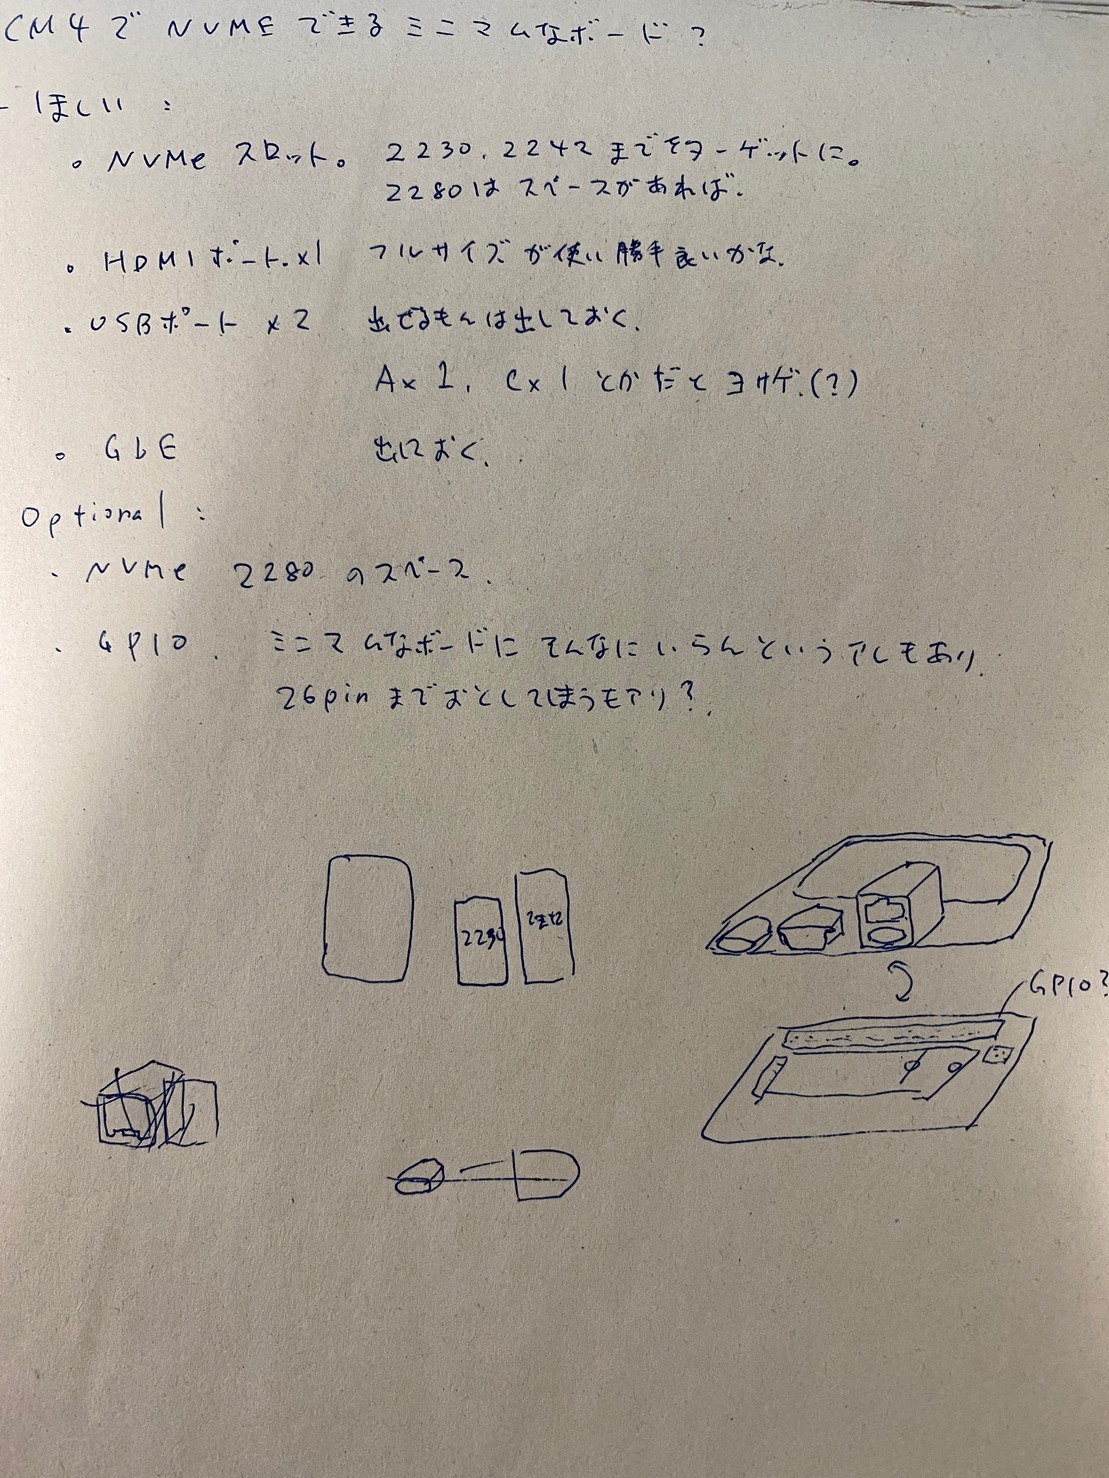 CM4で NVMEできるミニマムなボード?
- ほしい :
。NVMe スロット。 2230. 2242 までをターゲットに。
2280は スペースがあれば.
。HDMIポート.×1 フルサイズが使い勝手良いかな.
・USBポート ×2 出せるもんは出しておく.
A×1. C×1 とかだとヨサゲ.(?)
。GbE 出しておく.
Optional :
・NVMe 2280 のスペース.
・GPIO. ミニマムなボードに そんなにいらんという アレもあり.
26pin までおとしてしまうもアリ?
2230
2242
GPIO?